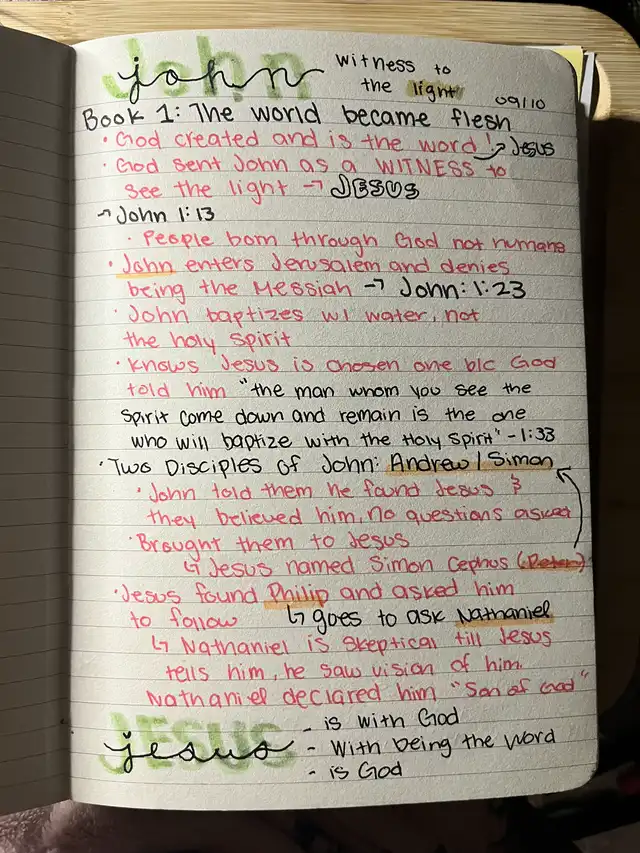 John
john
witness to
the light
09/10
Book 1: The world became flesh
• God created and is the word! → Jesus
• God sent John as a WITNESS to
see the light → JESUS
→ John 1:13
• People born through God not humans
• John enters Jerusalem and denies
being the Messiah → John: 1:23
• John baptizes w/ water, not
the holy spirit
• Knows Jesus is chosen one b/c God
told him "the man whom you see the
spirit come down and remain is the one
who will baptize with the Holy Spirit" - 1:33
• Two Disciples of John: Andrew / Simon
• John told them he found Jesus &
they believed him, no questions asked
• Brought them to Jesus
↳ Jesus named Simon Cephus (Peter)
• Jesus found Philip and asked him
to follow ↳ goes to ask Nathaniel
↳ Nathaniel is skeptical till Jesus
tells him, he saw vision of him.
Nathaniel declared him "Son of God"
JESUS
jesus
- is with God
- With being the Word
- is God